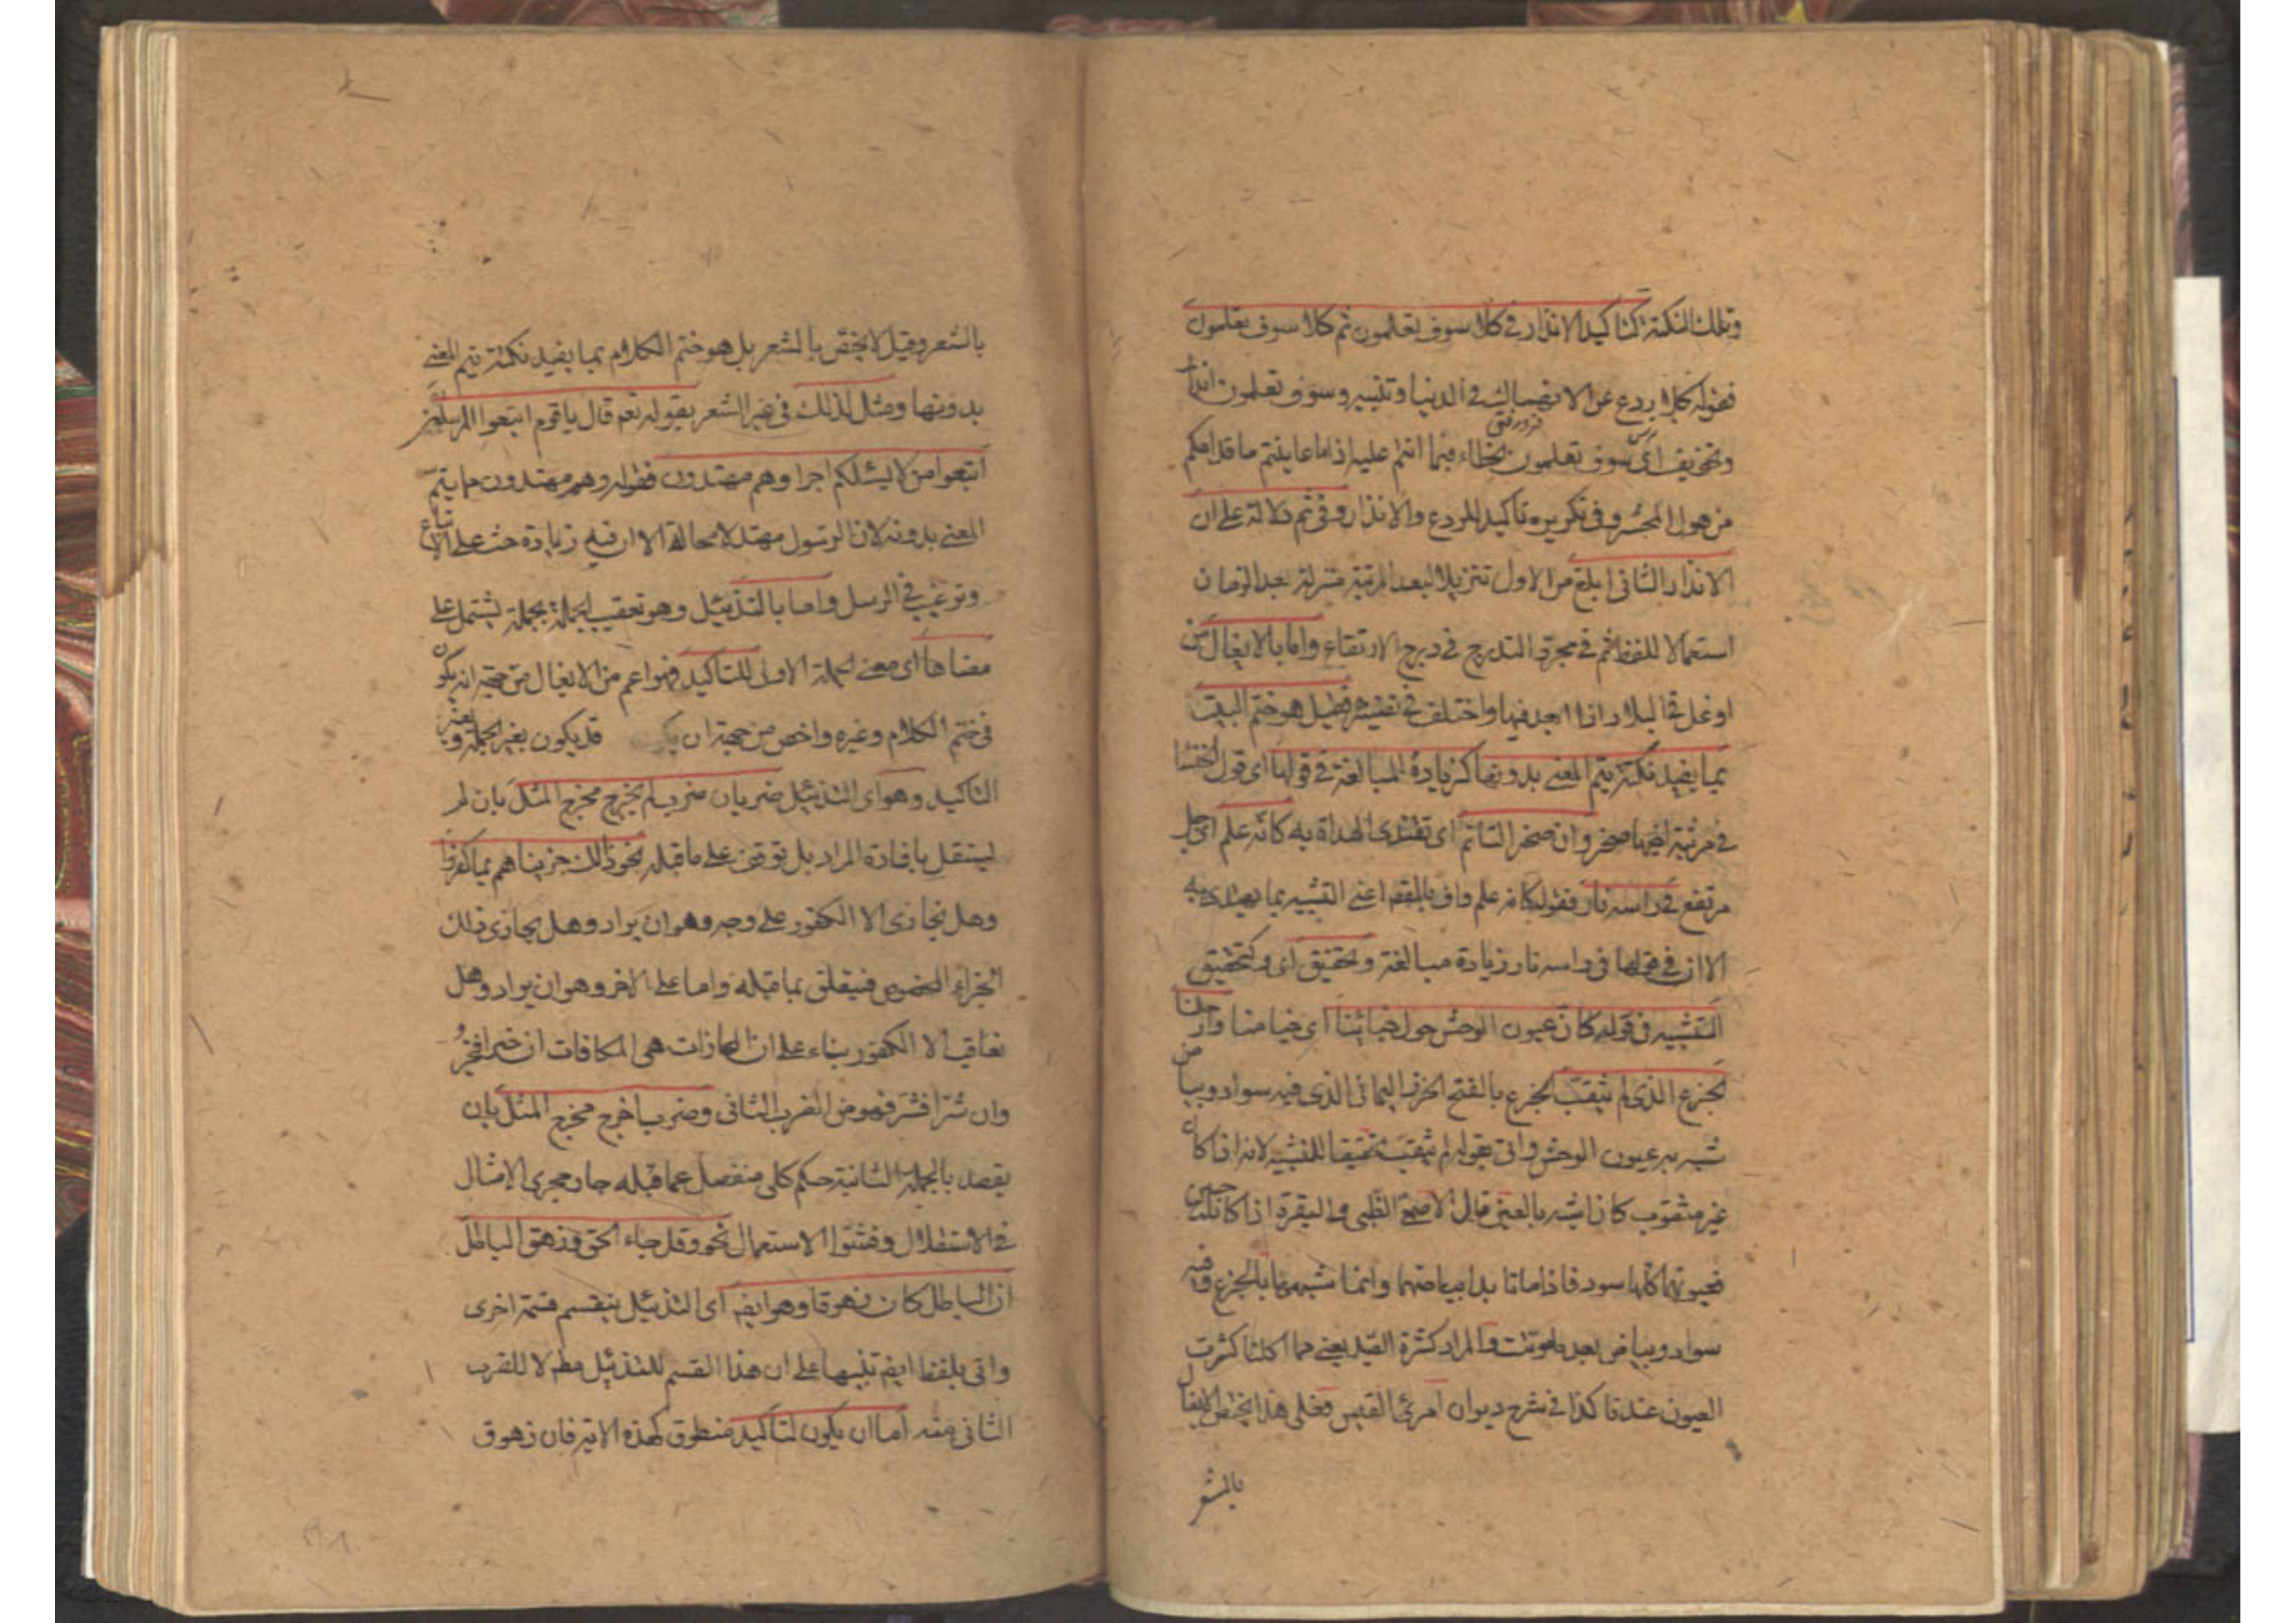 وتلك النكتة كتاكيد الانذار في كلا سوف تعلمون ثم كلا سوف تعلمون
فقوله كلا ردع عن الانهماك في الدنيا وتنبيه وسوف تعلمون انذار
وتخويف اي سوف تعلمون الخطاء فيما انتم عليه اذا ما عاينتم ما قدامكم
من هول المحشر وفي تكريره تاكيد للردع والانذار وفي ثم دلالة على ان
الانذار الثاني ابلغ من الاول تنزيلا لبعد المرتبة منزلة بعد الزمان
استعمالا للفظ ثم في مجرد التدرج في درج الارتقاع واما بالايغال من
اوغل في البلاد اذا ابعد فيها واختلف في تفسيره فقيل هو ختم البيت
بما يفيد نكتة يتم المعنى بدونها كزيادة المبالغة في قولها اى قول الخنسا
في مرثية اخيها صخر وان صخرا لتاتم اى تقتدى الهداة به كانه علم اى جبل
مرتفع في راسه نار فقولها كانه علم واف بالمقص اعني التشبيه بما يهتدى به
الا ان في قولها في راسه نار زيادة مبالغة وتحقيق اى وكتحقيق
التشبيه في قوله كان عيون الوحش حول خبائنا اى خيامنا وارحلنا
الجزع الذى لم يثقب الجزع بالفتح الخرز اليماني الذى فيه سواد وبياض
شبه به عيون الوحش واتى بقوله لم يثقب تحقيقا للتشبيه لانه اذا كان
غير مثقوب كان اشبه بالعين قال الاصمعي الظبي والبقرة اذا كانا حيين
فعيونهما كلها سود فاذا ماتا بدا بياضهما وانما شبهها بالجزع وفيه
سواد وبياض بعد ما موتت والمراد كثرة الصيد يعني مما اكلنا كثرت
العيون عندنا كذا في شرح ديوان امرئ القيس فعلى هذا يختص الايغال
بالشعر
بالشعر وقيل لا يختص بالشعر بل هو ختم الكلام بما يفيد نكتة يتم المعنى
بدونها ومثل لذلك في غير الشعر بقوله تعم قال ياقوم اتبعوا المرسلين
اتبعوا من لا يسئلكم اجرا وهم مهتدون فقوله وهم مهتدون مما يتم
المعنى بدونه لان الرسول مهتد لا محالة الا ان فيه زيادة حث على الاتباع
وترغيب في الرسل واما بالتذييل وهو تعقيب الجملة بجملة تشتمل على
معناها اى معنى الجملة الاولى للتاكيد فهو اعم من الايغال من جهة انه يكون
في ختم الكلام وغيره واخص من جهة ان قد يكون بغير الجملة وبغير
التاكيد وهو اى التذييل ضربان ضرب لم يخرج مخرج المثل بان لم
يستقل بافادة المراد بل توقف على ما قبله نحو ذلك جزيناهم بما كفروا
وهل نجازى الا الكفور على وجه وهو ان يراد وهل يجازى ذلك
الجزاء المخصوص فيتعلق بما قبله واما على الاخر وهو ان يراد وهل
نعاقب الا الكفور بناء على ان المجازات هي المكافات ان خيرا فخير
وان شرا فشر فهو من الضرب الثاني وضرب اخرج مخرج المثل بان
يقصد بالجملة الثانية حكم كلى منفصل عما قبله جار مجرى الامثال
في الاستقلال وفشو الاستعمال نحو وقل جاء الحق وزهق الباطل
ان الباطل كان زهوقا وهو ايضا اى التذييل ينقسم قسمة اخرى
واتى بلفظ ايضا تنبيها على ان هذا القسم للتذييل مطلقا لا للضرب
الثاني منه اما ان يكون لتاكيد منطوق كهذه الاية فان زهوق